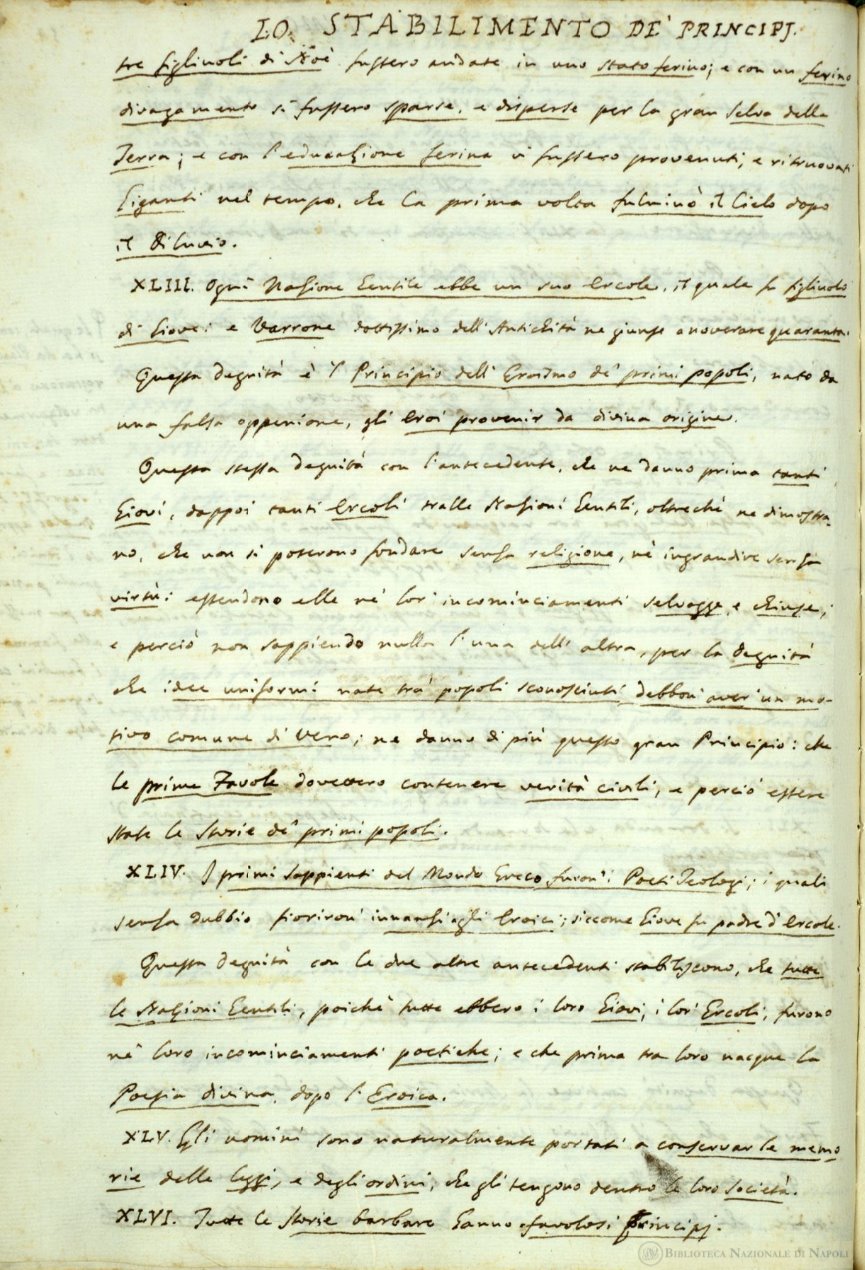 LO STABILIMENTO DE' PRINCIPJ.
tre figlivoli di Noè fussero andate in uno stato ferino; e con un ferino
divagamento si fussero sparse, e disperse per la gran Selva della
Terra; e con l'educazione ferina vi fussero provenuti, e ritruovati
Giganti nel tempo, che la prima volta fulminò il Cielo dopo
il Diluvio.
XLIII. Ogni Nazione Gentile ebbe un suo Ercole, il quale fu figlivolo
di Giove: e Varrone dottissimo dell'Antichità ne giunse a noverare quaranta.
Questa Degnità è 'l Principio dell'Eroismo de' primi popoli, nato da
una falsa oppenione, gli Eroi provenir da divina origine.
Questa stessa Degnità con l'antecedente, che ne danno prima tanti
Giovi, dappoi tanti Ercoli tralle Nazioni Gentili, oltrechè ne dimostra-
no, che non si poterono fondare senza religione, nè ingrandire senza
virtù: essendono elle ne' lor' incominciamenti selvagge, e chiuse;
e perciò non sappiendo nulla l'una dell'altra, per la Degnità
che idee uniformi nate tra' popoli sconosciuti, debbon' aver' un mo-
tivo comune di vero; ne danno di più questo gran Principio: che
le prime Favole dovettero contenere verità civili, e perciò essere
state le Storie de' primi popoli.
XLIV. I primi Sappienti del Mondo Greco furon' i Poeti Teologi; i quali
senza dubbio fioriron' innanzi agli Eroici; siccome Giove fu padre d'Ercole.
Questa Degnità con le due altre antecedenti stabiliscono, che tutte
le Nazioni Gentili, poichè tutte ebbero i loro Giovi, i lor' Ercoli, furono
ne' loro incominciamenti poetiche; e che prima tra loro nacque la
Poesia divina, dopo l'Eroica.
XLV. Gli uomini sono naturalmente portati a conservar le memo
rie delle leggi, e degli ordini, che gli tengono dentro le loro società.
XLVI. Tutte le Storie barbare hanno favolosi principj.
BIBLIOTECA NAZIONALE DI NAPOLI